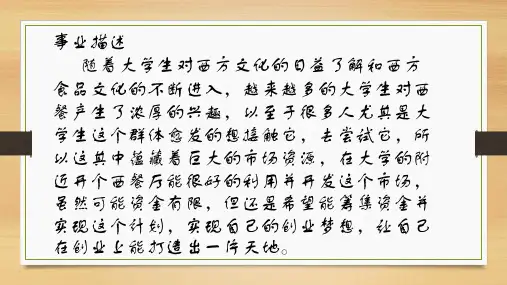 事业描述
随着大学生对西方文化的日益了解和西方
食品文化的不断进入，越来越多的大学生对西
餐产生了浓厚的兴趣，以至于很多人尤其是大
学生这个群体愈发的想接触它，去尝试它，所
以这其中蕴藏着巨大的市场资源，在大学的附
近开个西餐厅能很好的利用并开发这个市场，
虽然可能资金有限，但还是希望能筹集资金并
实现这个计划，实现自己的创业梦想，让自己
在创业上能打造出一片天地。